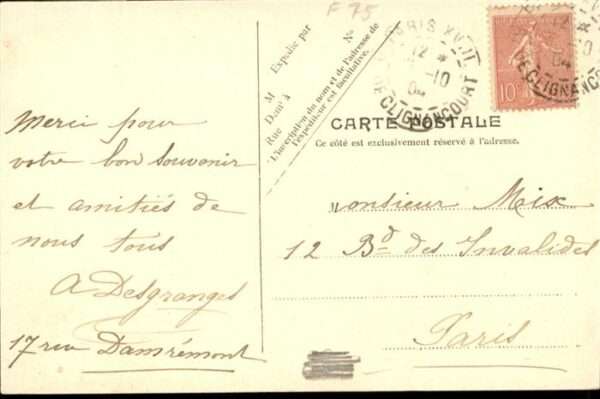 F 75
Expédié par
M
Dom t à
Rue
No
L'inscription du nom et de l'adresse de
l'expéditeur est facultative.
PARIS XVIII
12 *
10
04
DE CLIGNANCOURT
10
CARTE POSTALE
Ce côté est exclusivement réservé à l'adresse.
Merci pour
votre bon souvenir
et amitiés de
nous tous
A Desgranges
17 rue Damrémont
Monsieur Mix
12 Bd des Invalides
Paris